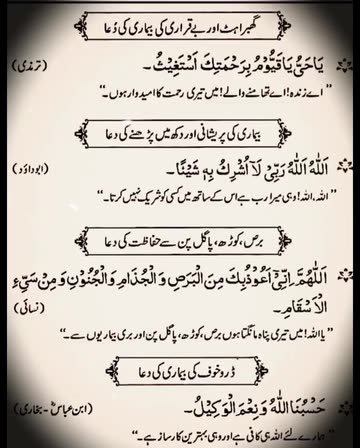 گھبراہٹ اور بے قراری کی بیماری کی دُعا
یَا حَیُّ یَا قَیُّوْمُ بِرَحْمَتِكَ اَسْتَغِیْثُ۔ (ترمذی)
”اے زندہ! اے تھامنے والے! میں تیری رحمت کا امیدوار ہوں۔“
بیماری کی پریشانی اور دکھ میں پڑھنے کی دعا
اَللّٰهُ اَللّٰهُ رَبِّیْ لَآ اُشْرِكُ بِهٖ شَیْئًا۔ (ابوداؤد)
”اللہ، اللہ! وہی میرا رب ہے اس کے ساتھ میں کسی کو شریک نہیں کرتا۔“
برص، کوڑھ، پاگل پن سے حفاظت کی دعا
اَللّٰهُمَّ اِنِّیْ اَعُوْذُبِكَ مِنَ الْبَرَصِ وَالْجُذَامِ وَالْجُنُوْنِ وَمِنْ سَیِّءِ
الْاَسْقَامِ۔ (نسائی)
”یا اللہ! میں تیری پناہ مانگتا ہوں برص، کوڑھ، پاگل پن اور بری بیماریوں سے۔“
ڈر و خوف کی بیماری کی دعا
حَسْبُنَا اللّٰهُ وَنِعْمَ الْوَكِیْلُ۔ (ابن عباسؓ - بخاری)
”ہمارے لئے اللہ ہی کافی ہے اور وہی بہترین کارساز ہے۔“